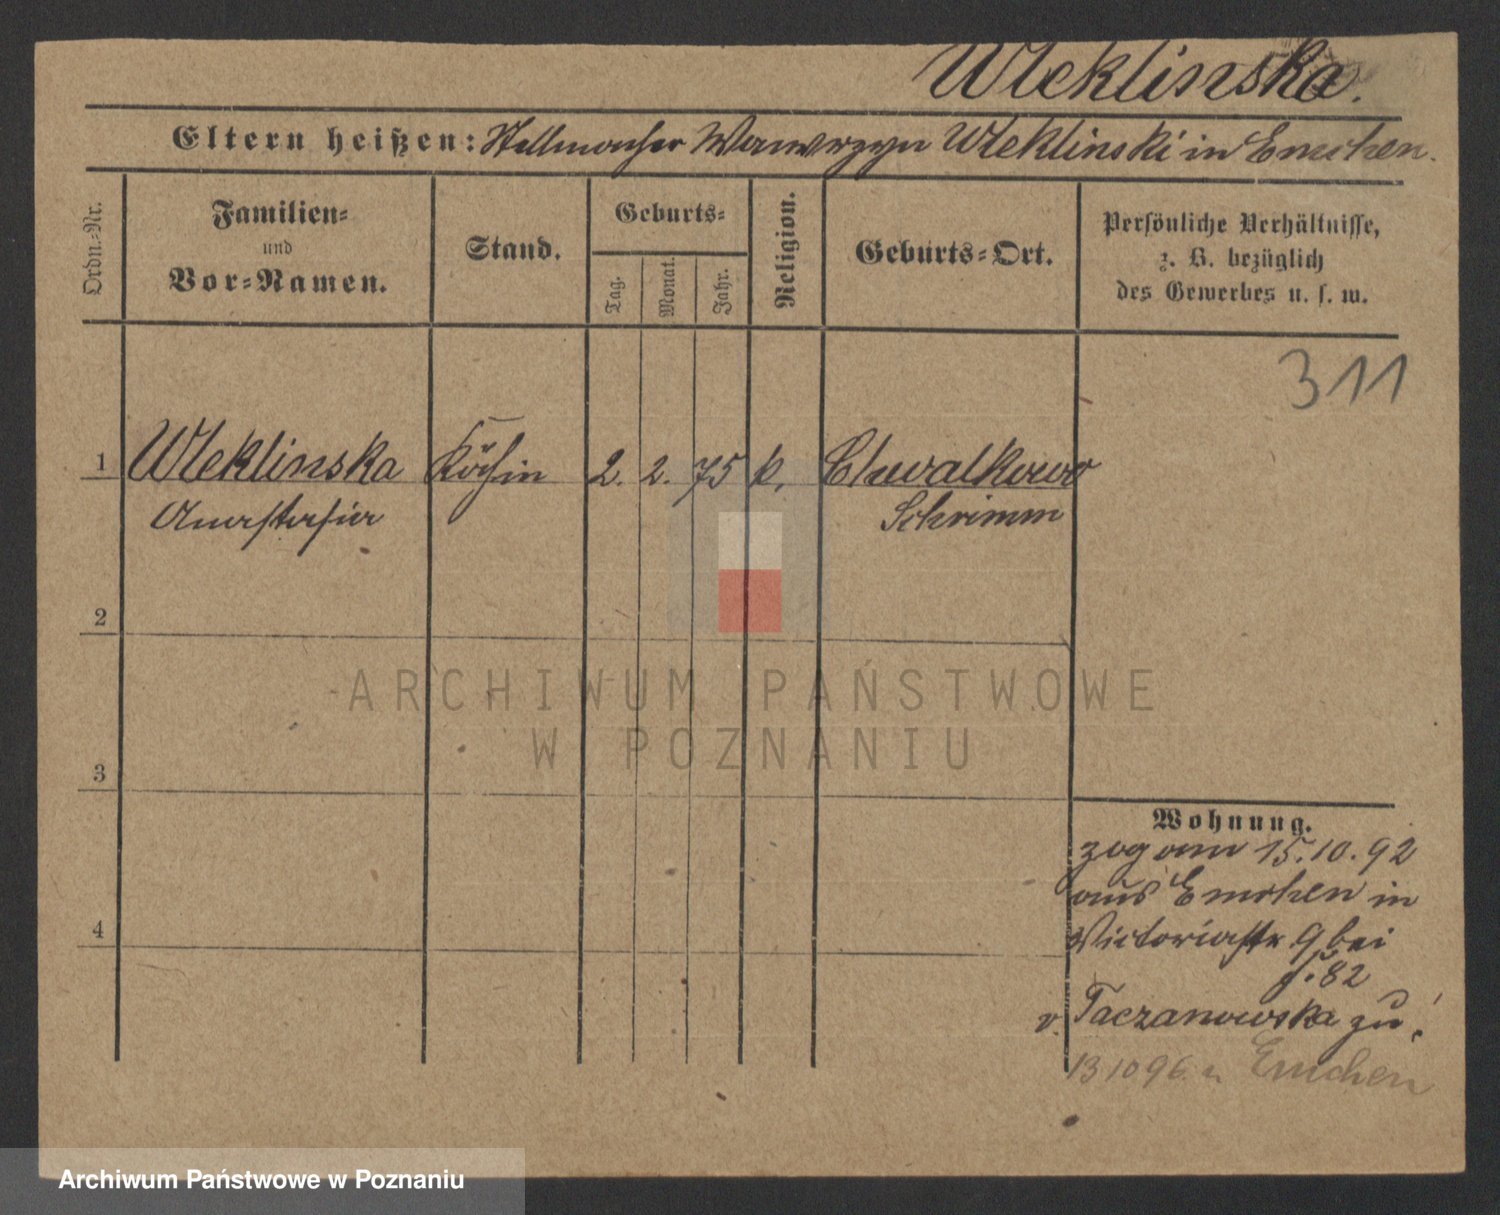 Wleklinska.
Eltern heißen: Stellmacher Wawrzyn Wleklinski in Emchen.
Ordn.-Nr.
Familien-
und
Vor-Namen.
Stand.
Geburts-
Tag.
Monat.
Jahr.
Religion.
Geburts-Ort.
Persönliche Verhältnisse,
z. B. bezüglich
des Gewerbes u. s. w.
311
1 Wleklinska Köchin 2. 2. 75 k. Chwalkowo
Anastasia Schrimm
2
ARCHIWUM PAŃSTWOWE
W POZNANIU
3
Wohnung.
zog am 15.10.92
aus Emchen in
4
Victoriastr 9 bei
f. 82
v. Taczanowska zu.
13 10 96 n. Emchen
Archiwum Państwowe w Poznaniu